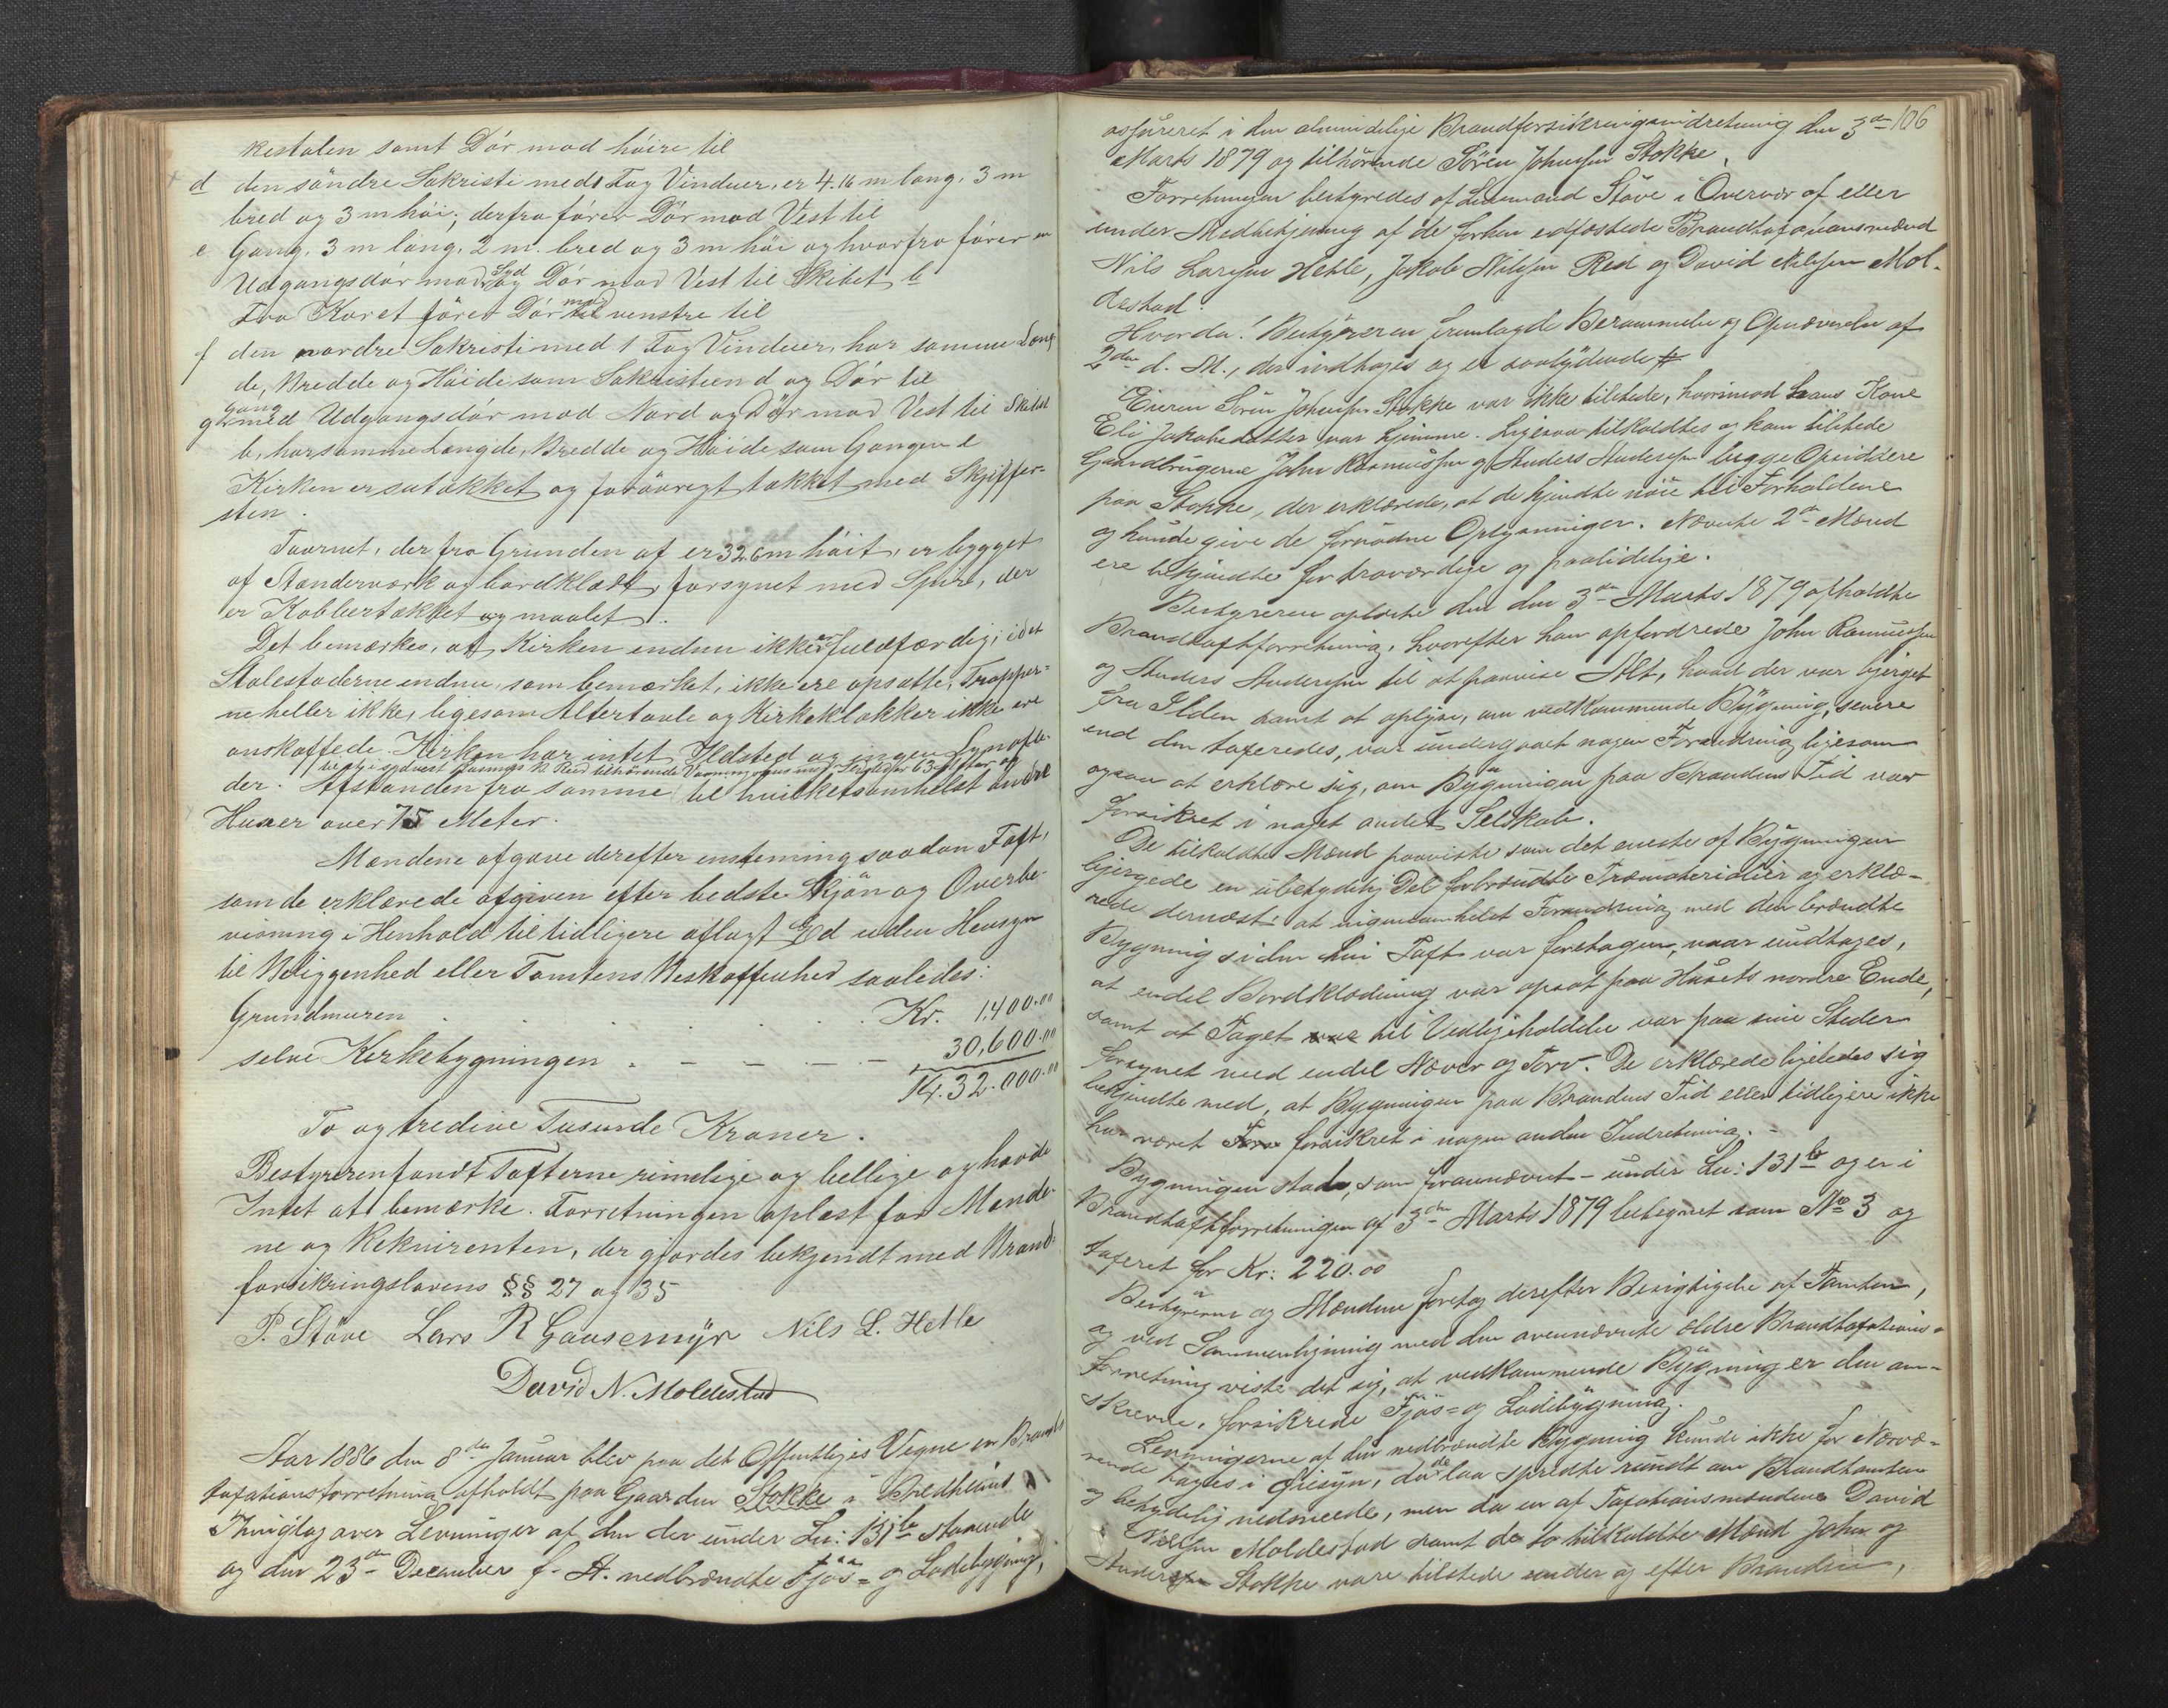 kestolen samt Dör mod höire til
d den söndre Sakristi med 1 Fag Vinduer, er 4.16 m lang, 3 m
bred og 3 m höi; derfra förer Dör mod Vest til
e Gang, 3 m lang, 2 m. bred og 3 m höi og hvorfra förer en
Udgangsdör mod Syd og Dör mod Vest til Skibet b
Fra Koret förer Dör mod venstre til
f den nordre Sakristi med 1 Fag Vinduer, har samme Læng
de, Bredde og Höide som Sakristien d og Dör til
g Gang med Udgangsdör mod Nord og Dör mod Vest til Skibet
b, har samme Længde, Bredde og Höide som Gangen e
Kirken er sutækket og forövrigt tækket med Skiffer-
sten.
Taarnet, der fra Grunden af er 32.6 m höit, er bygget
af Stænderværk og bordklædt, forsynet med Spir, der
er Kobbertækket og maalet.
Det bemærkes, at Kirken endnu ikke er fuldfærdig, idet
Stolestaderne endnu, som bemærket, ikke ere opsatte, Trapper-
ne heller ikke, ligesom Altertavle og Kirkeklokker ikke ere
anskaffede. Kirken har intet Ildsted og ingen Lynafle-
der. Afstanden fra samme til hvilketsomhelst andre
Huser over 75 Meter.
Mændene afgave derefter enstemmig saadan Taft,
som de erklærede afgiven efter bedste Skjön og Overbe-
visning i Henhold til tidligere aflagt Ed uden Hensyn
til Beliggenhed eller Tomtens Beskaffenhed saaledes:
Grundmuren . . . . . . Kr. 1,400.00
selve Kirkebygningen . - - - - 30,600.00
Kr. 32.000.00
To og tredive Tusinde Kroner.
Bestyreren fandt Tafterne rimelige og billige og havde
Intet at bemærke. Forretningen oplæst for Mænde-
ne og Rekvirenten, der gjordes bekjendt med Brand-
forsikringslovens §§ 27 og 35
P. Stöve Lars R Gausemyr Nils L. Hetle
David N. Moldestad
Aar 1886 den 8de Januar blev paa det Offentliges Vegne en Brand
taxationsforretning afholdt paa Gaarden Stokke i Bredheims
Thinglag over Levninger af den der under Lu: 131b staaende
og den 23de December f. A. nedbrændte Fjös- og Ladebygning,
106
assureret i den almindelige Brandforsikringsindretning den 3de
Marts 1879 og tilhörende Sören Johnsen Stokke.
Forretningen bestyredes af Lensmand Stöve i Overvær af eller
under Medbetjening af de forhen edfæstede Brandtaxationsmænd
Nils Larsen Hetle, Jakob Nilsen Red og David Nilsen Mol-
destad.
Hvorda! Bestyreren fremlagde Berammelse og Opnævnelse af
2den d. M., der indtages og er saalydende #
Eieren Sören Johnsen Stokke var ikke tilstede, hvorimod hans Kone
Eli Jakobsdatter var hjemme. Ligesaa tilkaldtes og kom tilstede
Gaardbrugerne John Rasmussen og Anders Andersen begge Opsiddere
paa Stokke, der erklærede, at de kjendte nöie til Forholdene
og kunde give de fornödne Oplysninger. Nævnte 2de Mænd
ere bekjendte for troværdige og paalidelige.
Bestyreren oplæste den den 3die Marts 1879 afholdte
Brandtaftforretning, hvorefter han opfordrede John Rasmussen
og Anders Andersen til at paavise Alt, hvad der var bjerget
fra Ilden samt at oplyse, om vedkommende Bygning, senere
end den taxeredes, var undergaaet nogen Forandring ligesom
ogsaa at erklære sig, om Bygningen paa Brandens Tid var
forsikret i noget andet Selskab.
De tilkaldte Mænd paaviste som det eneste af Bygningen
bjergede en ubetydelig Del forbrændte Træmaterialier og erklæ-
rede dernæst: at ingensomhelst Forandring med den brændte
Bygning siden hin Taft var foretagen, naar undtages,
at endel Bordklædning var opsat paa Husets nordre Ende,
samt at Taget til Vedligeholdelse var paa sine Steder
forsynet med endel Næver og Torv. De erklærede ligeledes sig
bekjendte med, at Bygningen paa Brandens Tid eller tidligere ikke
har været forsikret i nogen anden Indretning. -
Bygningen stod, som forannævnt - under Lu: 131b og er i
Brandtaftforretningen af 3die Marts 1879 betegnet som No 3 og
taxeret for Kr: 220.00
Bestyreren og Mændene foretog derefter Besigtigelse af Tomten,
og ved Sammenligning med den ovennævnte ældre Brandtaxations-
forretning viste det sig, at vedkommende Bygning er den om-
skrevne, forsikrede Fjös- og Ladebygning.
Levningerne af den nedbrændte Bygning kunde ikke for Nærvæ-
rende tages i Öiesyn, da de laa spredte rundt om Brandtomten
og betydelig nedsneede, men da en af Taxationsmændene David
Nilsen Moldestad samt de to tilkaldte Mænd John og
Anders Stokke vare tilstede under og efter Branden,